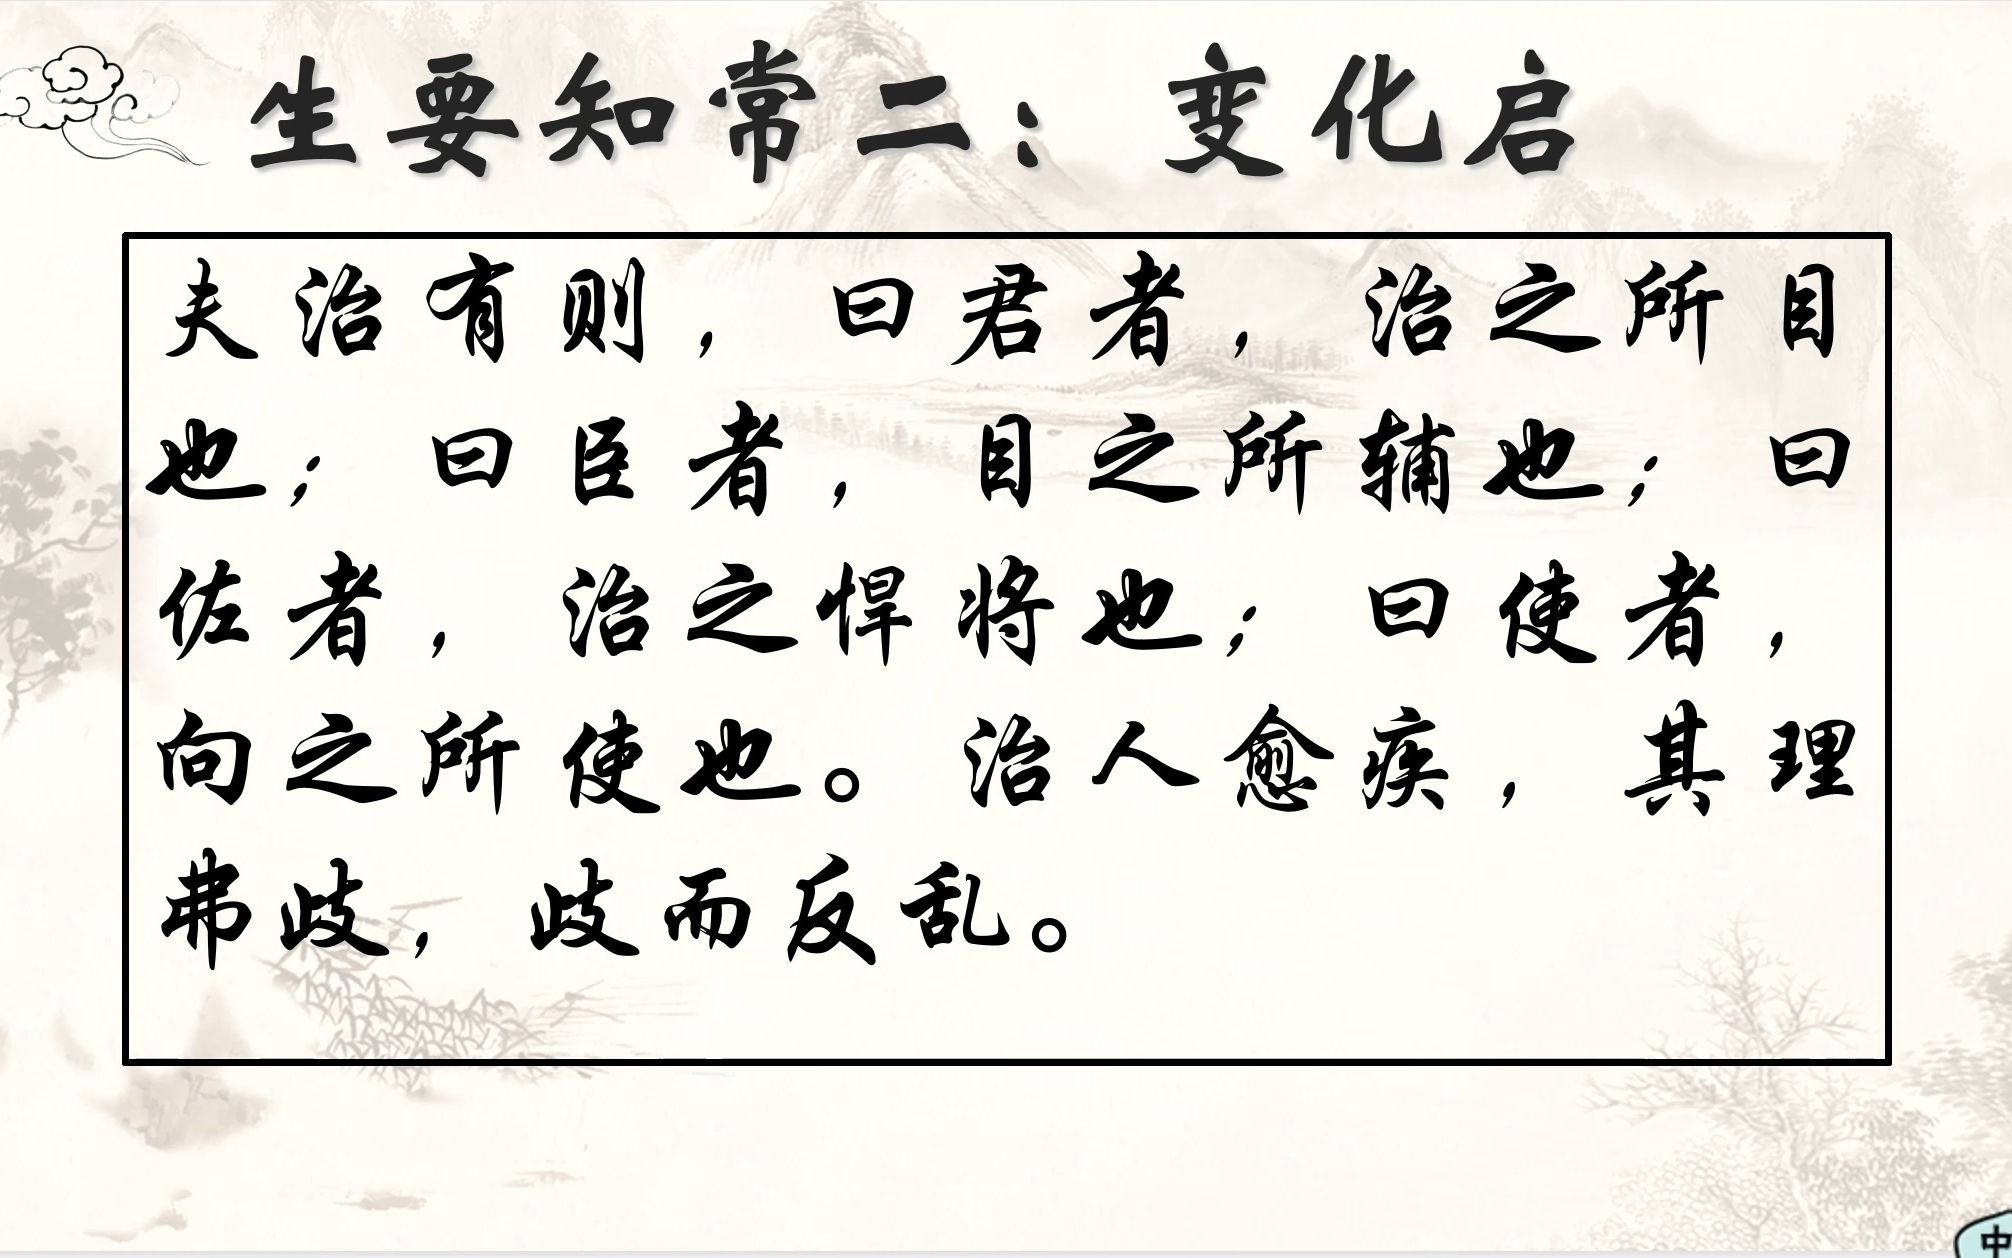 生要知常二：变化启
夫治有则，曰君者，治之所目
也；曰臣者，目之所辅也；曰
佐者，治之悍将也；曰使者，
向之所使也。治人愈疾，其理
弗歧，歧而反乱。
中